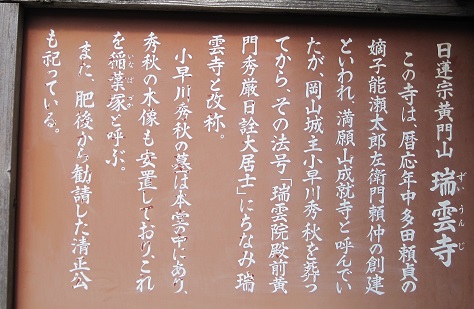 日蓮宗黄門山 瑞雲寺
ずいうんじ
この寺は、暦応年中多田頼貞の
嫡子能瀬太郎左衛門頼仲の創建
といわれ、満願山成就寺と呼んでい
たが、岡山城主小早川秀秋を葬っ
てから、その法号「瑞雲院殿前黄
門秀厳日詮大居士」にちなみ瑞
雲寺と改称。
小早川秀秋の墓は本堂の中にあり、
秀秋の木像も安置しており、これ
を稲葉家と呼ぶ。
また、肥後から勧請した清正公
も祀っている。